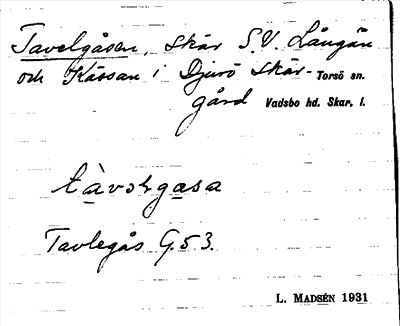 Tavelgåsen, skär S.V. Långön
och Kässan i Djurö skär- Torsö sn.
gård Vadsbo hd. Skar. l.
tàvəlgasa
Tavlegås G.53.
L. MADSÉN 1931